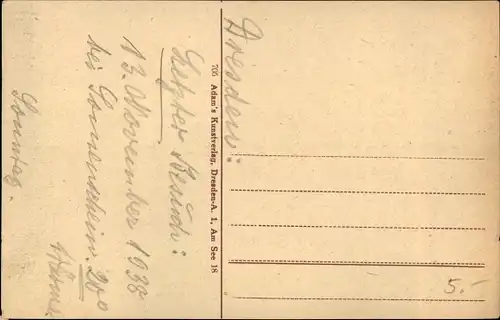 Dresden:
Letzter Besuch:
13. November 1938
bei Sonnenschein 20°
Wärme.
Sonntag.
705 Adam's Kunstverlag, Dresden-A. 1, Am See 18
5.-